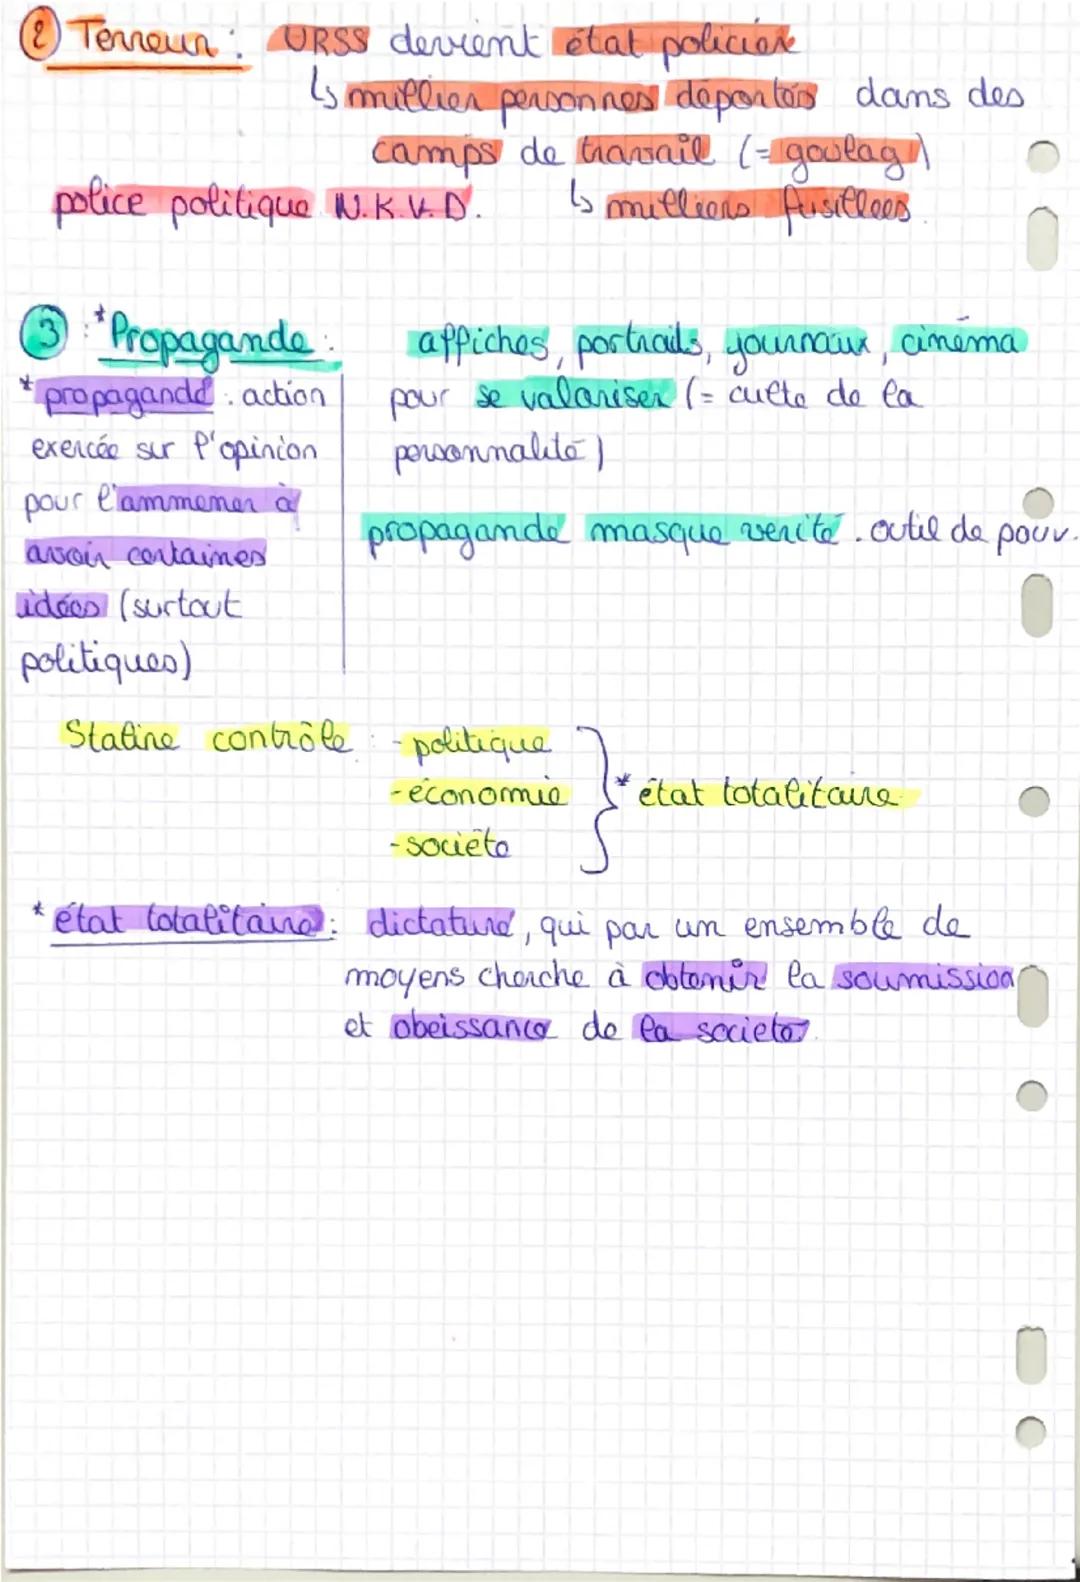 ② Terreur : URSS devient état policier
↳ millier personnes déportés dans des
camps de travail (= goulag)
police politique N.K.V.D. ↳ milliers fusillees.
③ : *Propagande : affiches, portraits, journaux, cinéma
pour se valoriser (= culte de la
personnalité)
propagande masque verité. outil de pouv.
* propagande : action
exercée sur l'opinion
pour l'ammener à
avoir certaines
idées (surtout
politiques)
Staline contrôle : - politique
- économie
- société
} * état totalitaire
* état totalitaire : dictature, qui par un ensemble de
moyens cherche à obtenir la soumission
et obeissance de la societe.